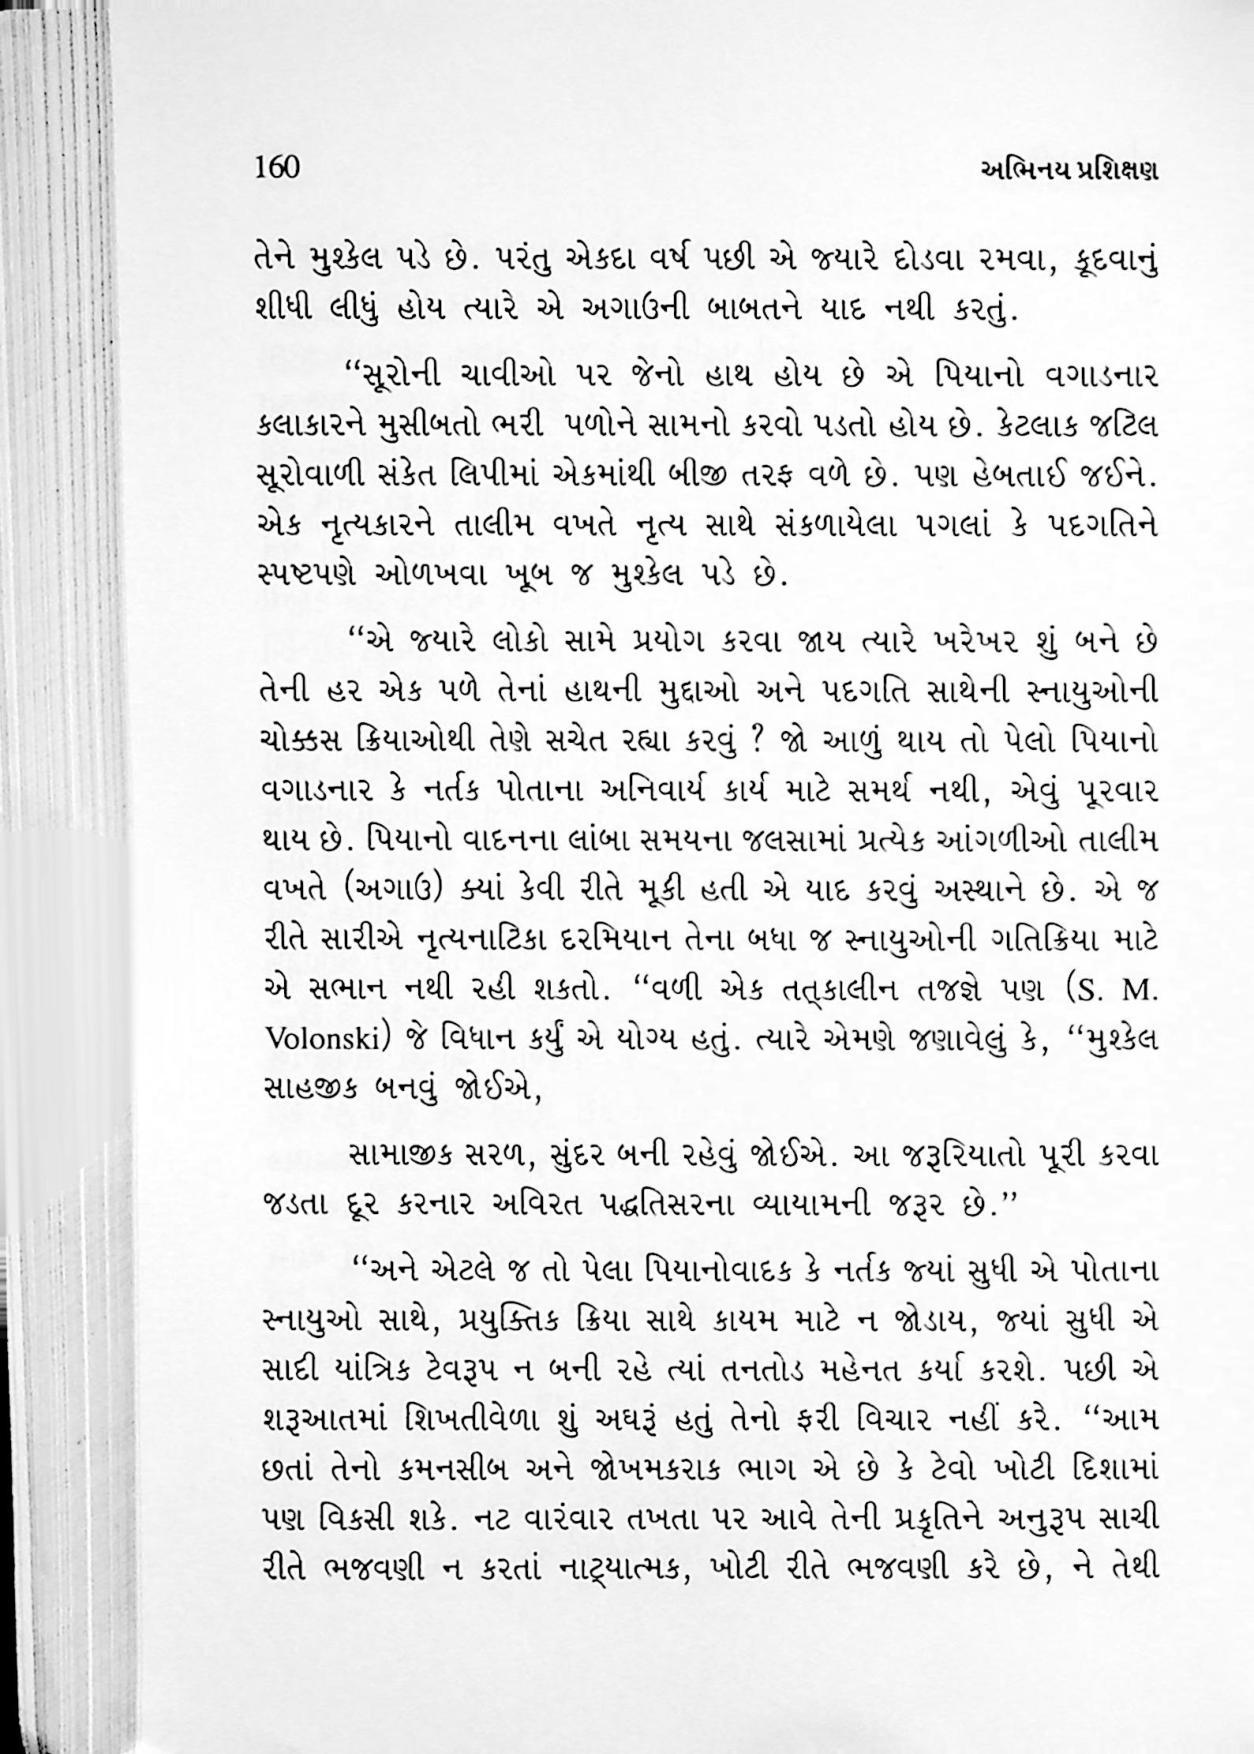 160 અભિનય પ્રશિક્ષણ
તેને મુશ્કેલ પડે છે. પરંતુ એકદા વર્ષ પછી એ જયારે દોડવા રમવા, કૂદવાનું
શીધી લીધું હોય ત્યારે એ અગાઉની બાબતને યાદ નથી કરતું.
“સૂરોની ચાવીઓ પર જેનો હાથ હોય છે એ પિયાનો વગાડનાર
કલાકારને મુસીબતો ભરી પળોને સામનો કરવો પડતો હોય છે. કેટલાક જટિલ
સૂરોવાળી સંકેત લિપીમાં એકમાંથી બીજી તરફ વળે છે. પણ હેબતાઈ જઈને.
એક નૃત્યકારને તાલીમ વખતે નૃત્ય સાથે સંકળાયેલા પગલાં કે પદગતિને
સ્પષ્ટપણે ઓળખવા ખૂબ જ મુશ્કેલ પડે છે.
“એ જયારે લોકો સામે પ્રયોગ કરવા જાય ત્યારે ખરેખર શું બને છે
તેની હર એક પળે તેનાં હાથની મુદ્દાઓ અને પદગતિ સાથેની સ્નાયુઓની
ચોક્કસ ક્રિયાઓથી તેણે સચેત રહ્યા કરવું ? જો આળું થાય તો પેલો પિયાનો
વગાડનાર કે નર્તક પોતાના અનિવાર્ય કાર્ય માટે સમર્થ નથી, એવું પૂરવાર
થાય છે. પિયાનો વાદનના લાંબા સમયના જલસામાં પ્રત્યેક આંગળીઓ તાલીમ
વખતે (અગાઉ) ક્યાં કેવી રીતે મૂકી હતી એ યાદ કરવું અસ્થાને છે. એ જ
રીતે સારીએ નૃત્યનાટિકા દરમિયાન તેના બધા જ સ્નાયુઓની ગતિક્રિયા માટે
એ સભાન નથી રહી શકતો. “વળી એક તત્કાલીન તજજ્ઞે પણ (S. M.
Volonski) જે વિધાન કર્યું એ યોગ્ય હતું. ત્યારે એમણે જણાવેલું કે, “મુશ્કેલ
સાહજીક બનવું જોઈએ,
સામાજીક સરળ, સુંદર બની રહેવું જોઈએ. આ જરૂરિયાતો પૂરી કરવા
જડતા દૂર કરનાર અવિરત પદ્ધતિસરના વ્યાયામની જરૂર છે.”
“અને એટલે જ તો પેલા પિયાનોવાદક કે નર્તક જયાં સુધી એ પોતાના
સ્નાયુઓ સાથે, પ્રયુક્તિક ક્રિયા સાથે કાયમ માટે ન જોડાય, જયાં સુધી એ
સાદી યાંત્રિક ટેવરૂપ ન બની રહે ત્યાં તનતોડ મહેનત કર્યા કરશે. પછી એ
શરૂઆતમાં શિખતીવેળા શું અઘરૂં હતું તેનો ફરી વિચાર નહીં કરે. “આમ
છતાં તેનો કમનસીબ અને જોખમકરાક ભાગ એ છે કે ટેવો ખોટી દિશામાં
પણ વિકસી શકે. નટ વારંવાર તખતા પર આવે તેની પ્રકૃતિને અનુરૂપ સાચી
રીતે ભજવણી ન કરતાં નાટ્યાત્મક, ખોટી રીતે ભજવણી કરે છે, ને તેથી